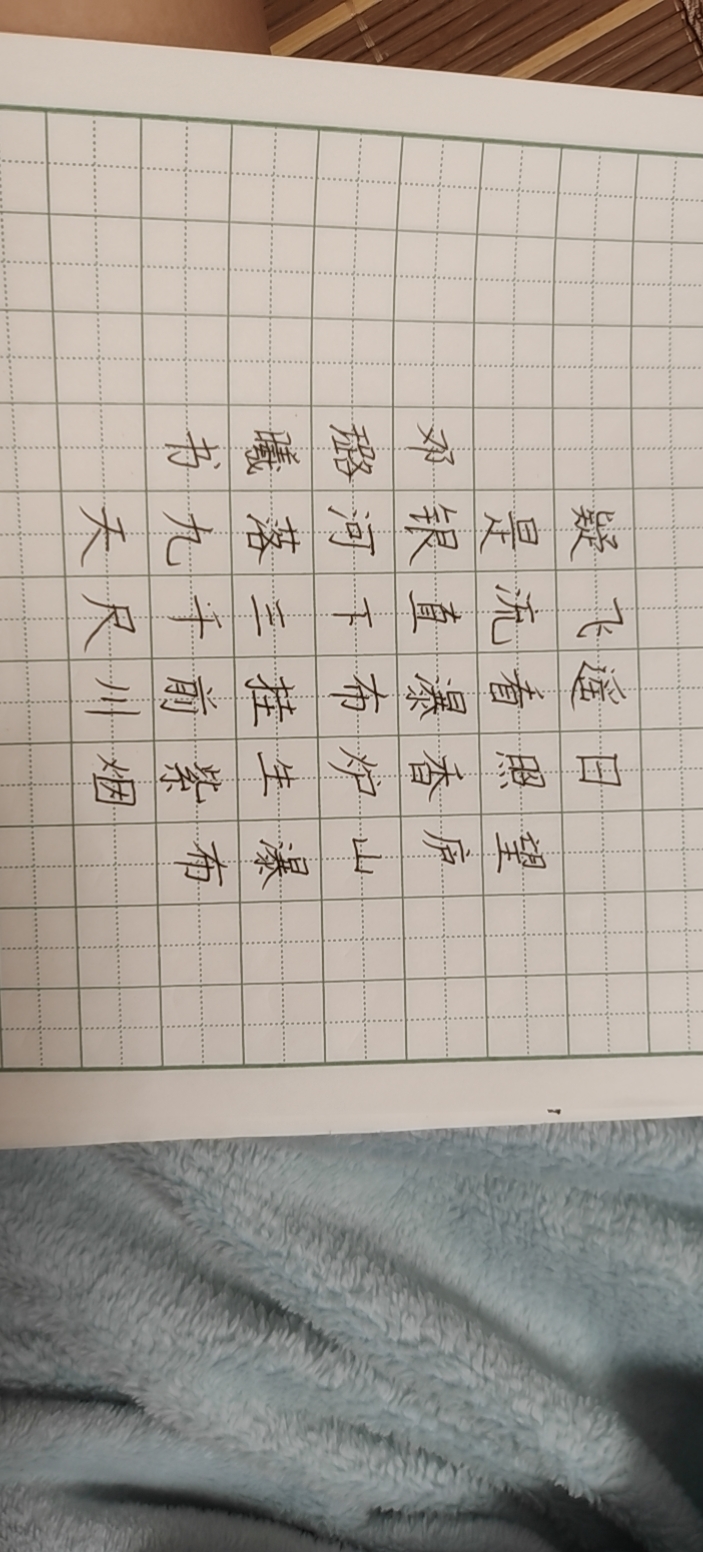 望庐山瀑布
日照香炉生紫烟
遥看瀑布挂前川
飞流直下三千尺
疑是银河落九天
邓璐曦书